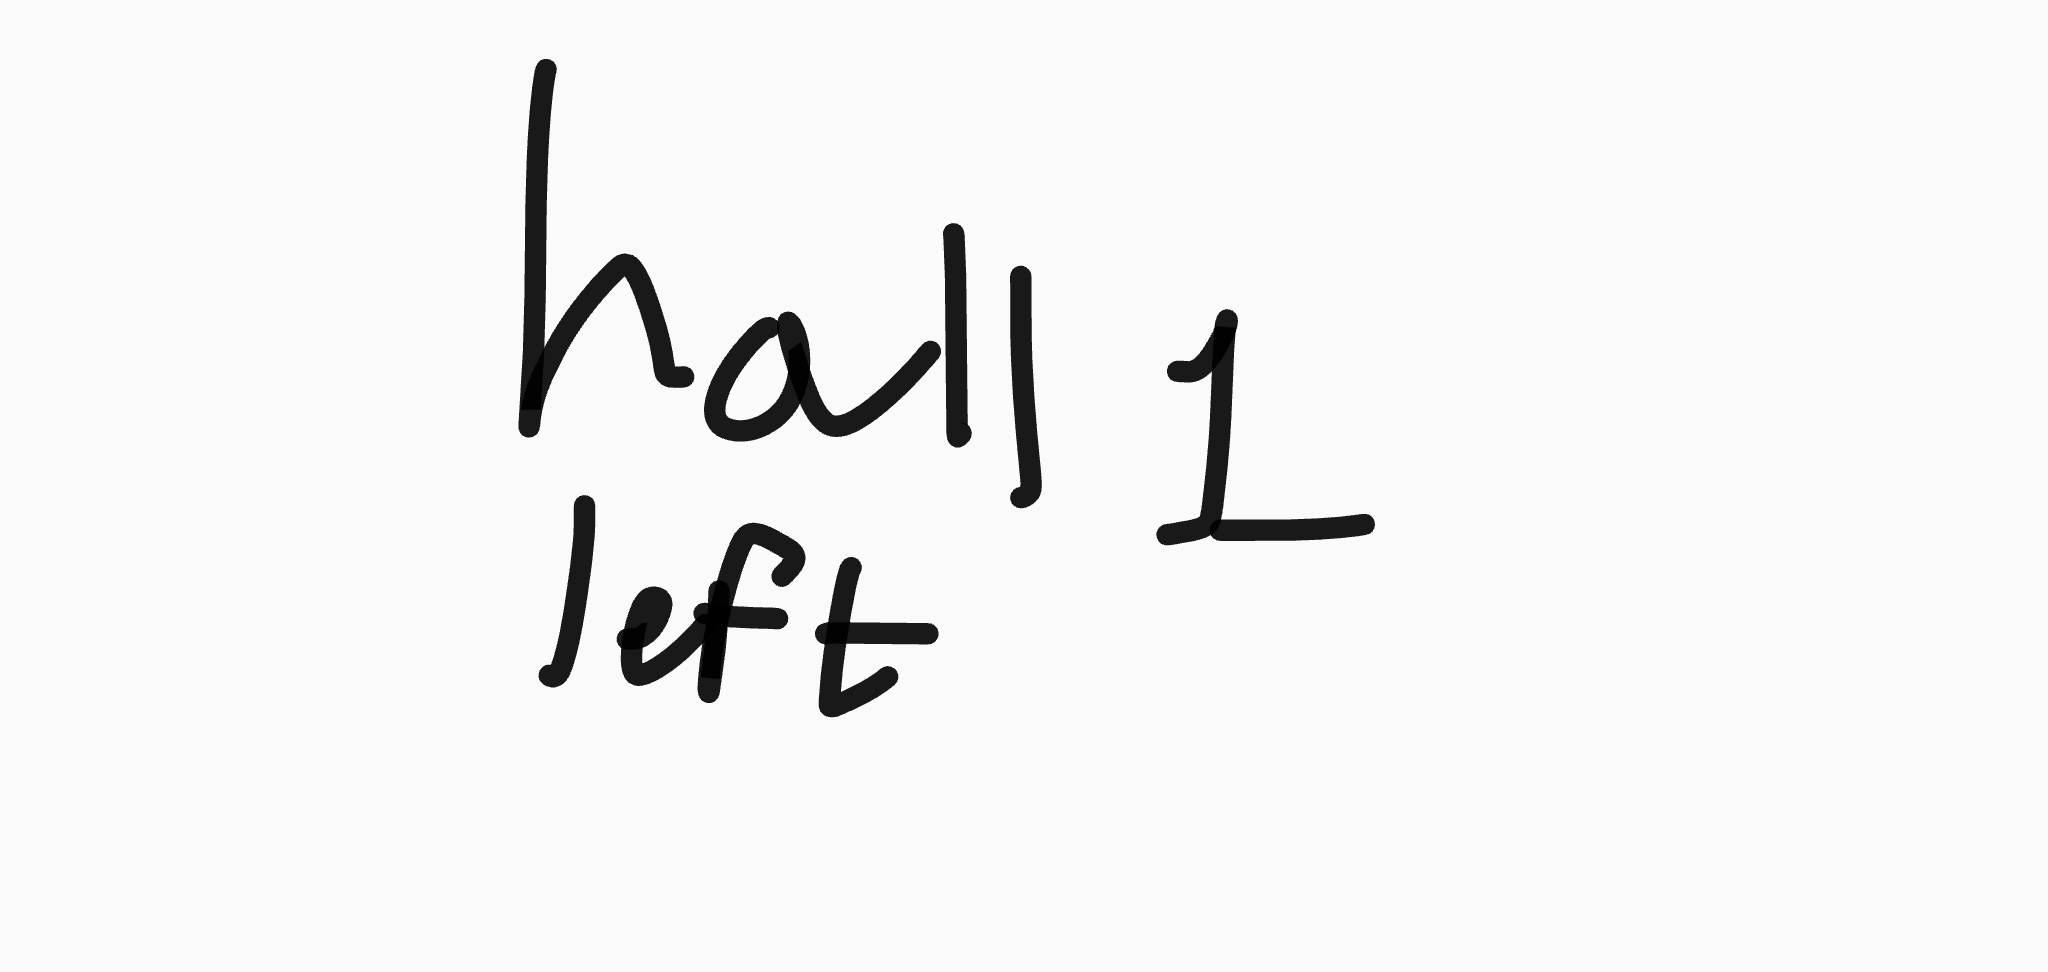 hall 1
left